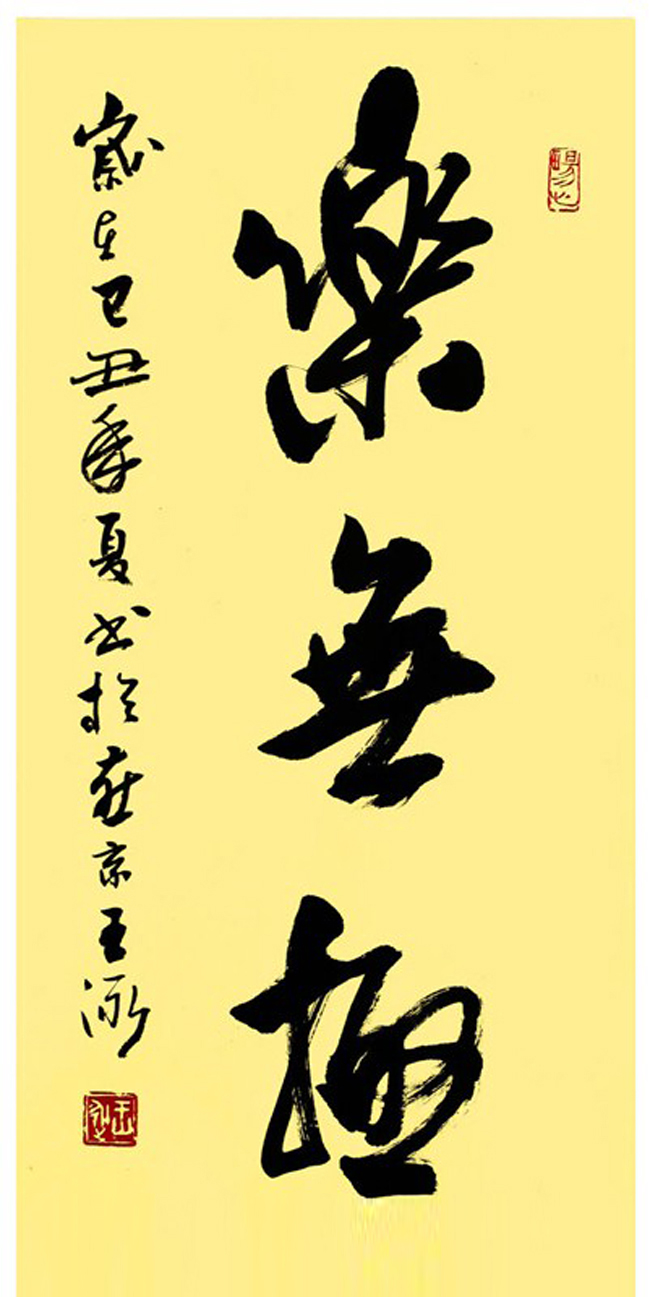 樂無極
歲在己丑年夏書於燕京王